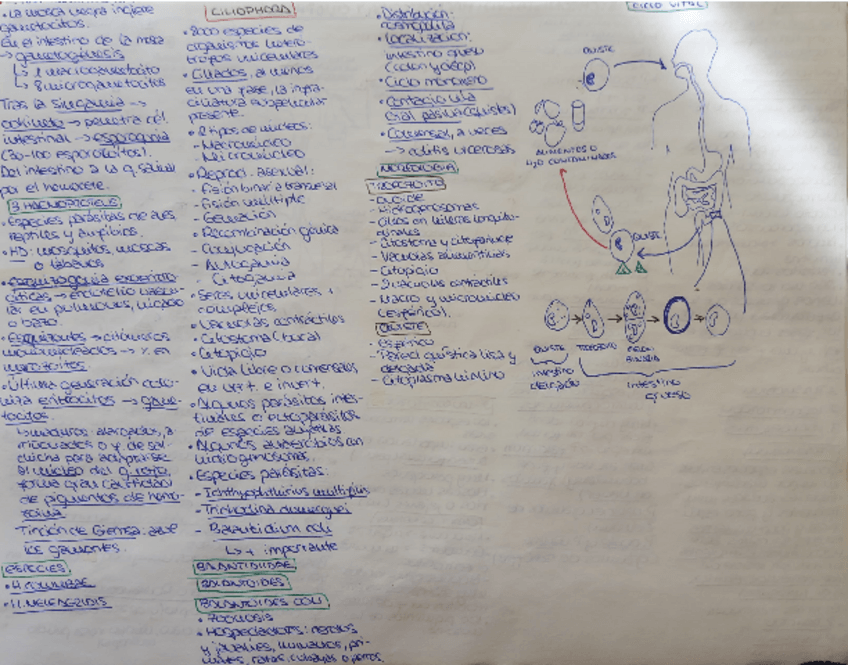 • La mosca negra ingiere
gametocitos.
En el intestino de la mosca
→ gametogénesis
↳ 1 macrogametocito
↳ 8 microgametocitos
Tras la singamia →
ookineto → penetra cél.
intestinal → esporogonia
(30-100 esporozoítos).
Del intestino a la g. salival
por el hemocele.
3. HAEMOPROTEUS
• Especies parásitas de aves,
reptiles y anfibios.
• HD: mosquitos, moscas
o tábanos
• esquizogonia exoeritro-
cíticas → endotelio vascu-
lar en pulmones, hígado
o bazo.
• Esquizontes → citómeros
mononucleados → en
merozoitos
• Última generación colo-
niza eritrocitos → game-
tocitos.
↳ maduros alargados, a
o y de sal-
chicha para adaptarse
al núcleo del g. rojo,
forma gran cantidad
de pigmentos de hemo-
zoina
Tinción de Giemsa: azul
los gamontes.
ESPECIES
• H. COLUMBAE
• H. MELEAGRIDIS
CILIOPHORA
• 8000 especies de
organismos hetero-
trofos unicelulares
• Ciliados, a menos
en una fase, la infra-
ciliatura subpelicular
presente.
• 2 tipos de núcleos:
- Macronúcleo
- Micronúcleo
• Reprod. asexual:
- Fisión binaria transversal
- Fisión múltiple
- Gemación
• Recombinación génica
- Conjugación
- Autogamia
- Citogamia
• Seres unicelulares +
complejos.
• Vacuolas contráctiles
• Citostoma (bucal)
• Citopigio
• Vida libre o comensales
en vert. e invert.
• Algunos parásitos intes-
tinales o ectoparásitos
de especies acuáticas
• Algunos simbiontes en
• Especies parásitas:
- Ichthyophthirius multifiliis
- Trichodina domerguei
- Balantidium coli
↳ + importante
BALANTIDIIDAE
BALANTOIDES
BALANTOIDES COLI
• Zoonosis
• Hospedadores: cerdos
y jabalíes, humanos, pri-
mates, ratas, cobayas o perros.
• Distribución:
cosmopolita
• Localización:
intestino grueso
(colon y ciego)
• Ciclo monoxeno
• Contagio vía
oral pasiva (quistes)
• Comensal, a veces
→ colitis ulcerosas
MORFOLOGÍA
TROFOZOITO
- Ovoide
- Hidrogenosomas
- Cilios en hileras longitu-
dinales
- Citostoma y citofaringe
- Vacuolas alimenticias
- Citopigio
- 2 vacuolas contráctiles
- Macro y micronúcleo
(esférico).
QUISTE
- Esférico
- Pared quística lisa y
delgada
- Citoplasma hialino
CICLO VITAL
QUISTE
ALIMENTOS O
H2O CONTAMINADOS
QUISTE
QUISTE
TROFOZOITO
FISIÓN
BINARIA
intestino
delgado
intestino
grueso